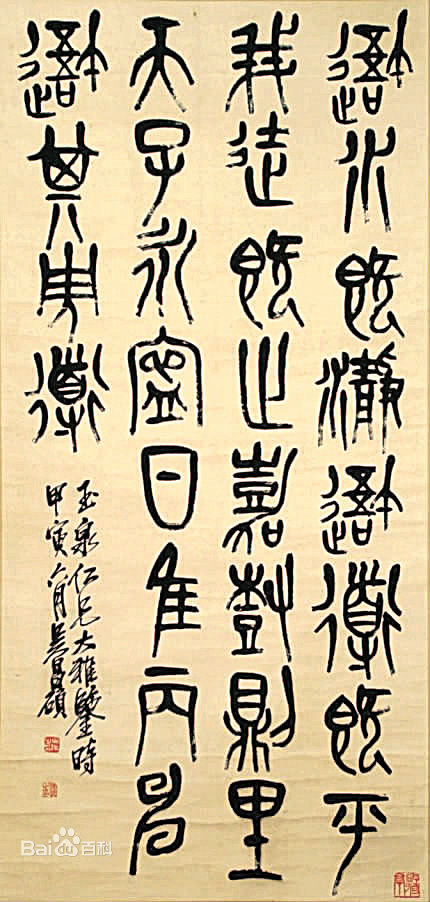 䢔水既瀞䢔導既平
我徒既止嘉尌則里
天子永寧日隹丙申
䢔其導
玉泉仁兄大雅鑒時
甲寅六月吳昌碩
Bai百科